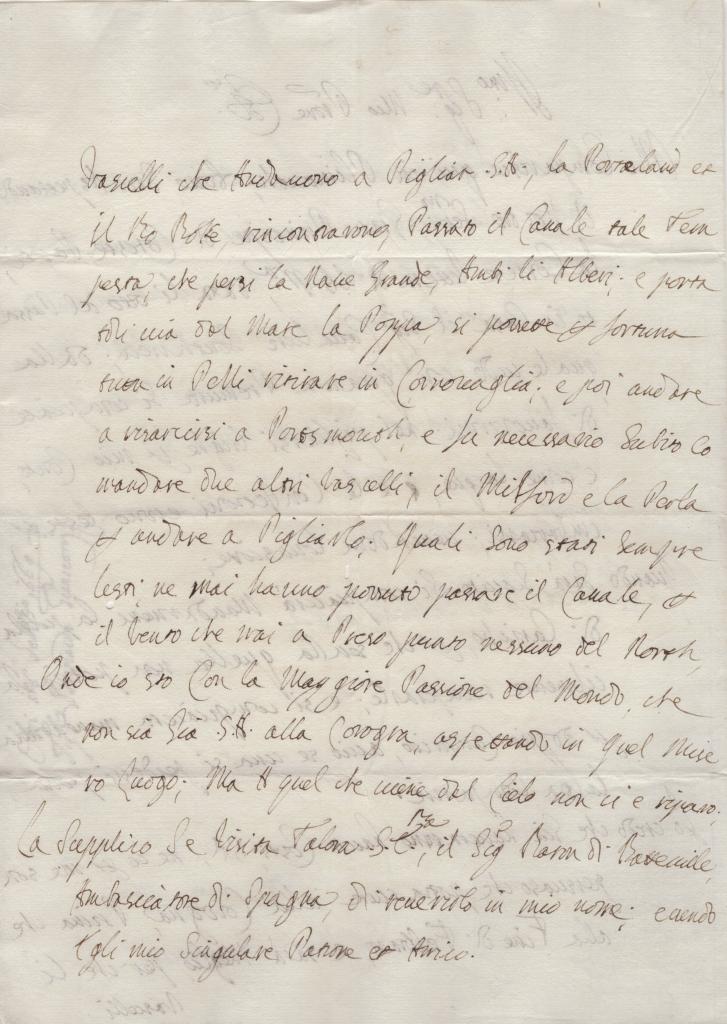 Vascelli che Andavono a Pigliar S.A., la Porteland et
il Ro Boke, rincontrarono, Passato il Canale tale Tem
pesta, che persi la Nave Grande, Ambi li Alberi; e porta
toli via dal Mare la Poppa, si possette p fortuna
in Pelli ritirare in Cornovaglia; e poi andare
a risarcirsi a Portsmouth, e fu necessario Subito Co
mandare due altri Vascelli, il Milford e la Perla
p andare a Pigliarlo; Quali Sono stati Sempre
lesti, ne mai hanno possuto passare il Canale, p
il Vento che mai a Preso punto nessuno del North,
Onde io sto Con la Maggiore Passione del Mondo, che
non sia Già S.A. alla Corogna, aspettando in Quel Mise
ro Luogo; Ma A quel che viene dal Cielo non ci e riparo.
La Supplico Se Visita Talora S.E., il Sig Baron di Batteville,
Ambasciatore di Spagna, di riverirlo in mio nome; essendo
Egli mio Singulare Patrone et Amico.